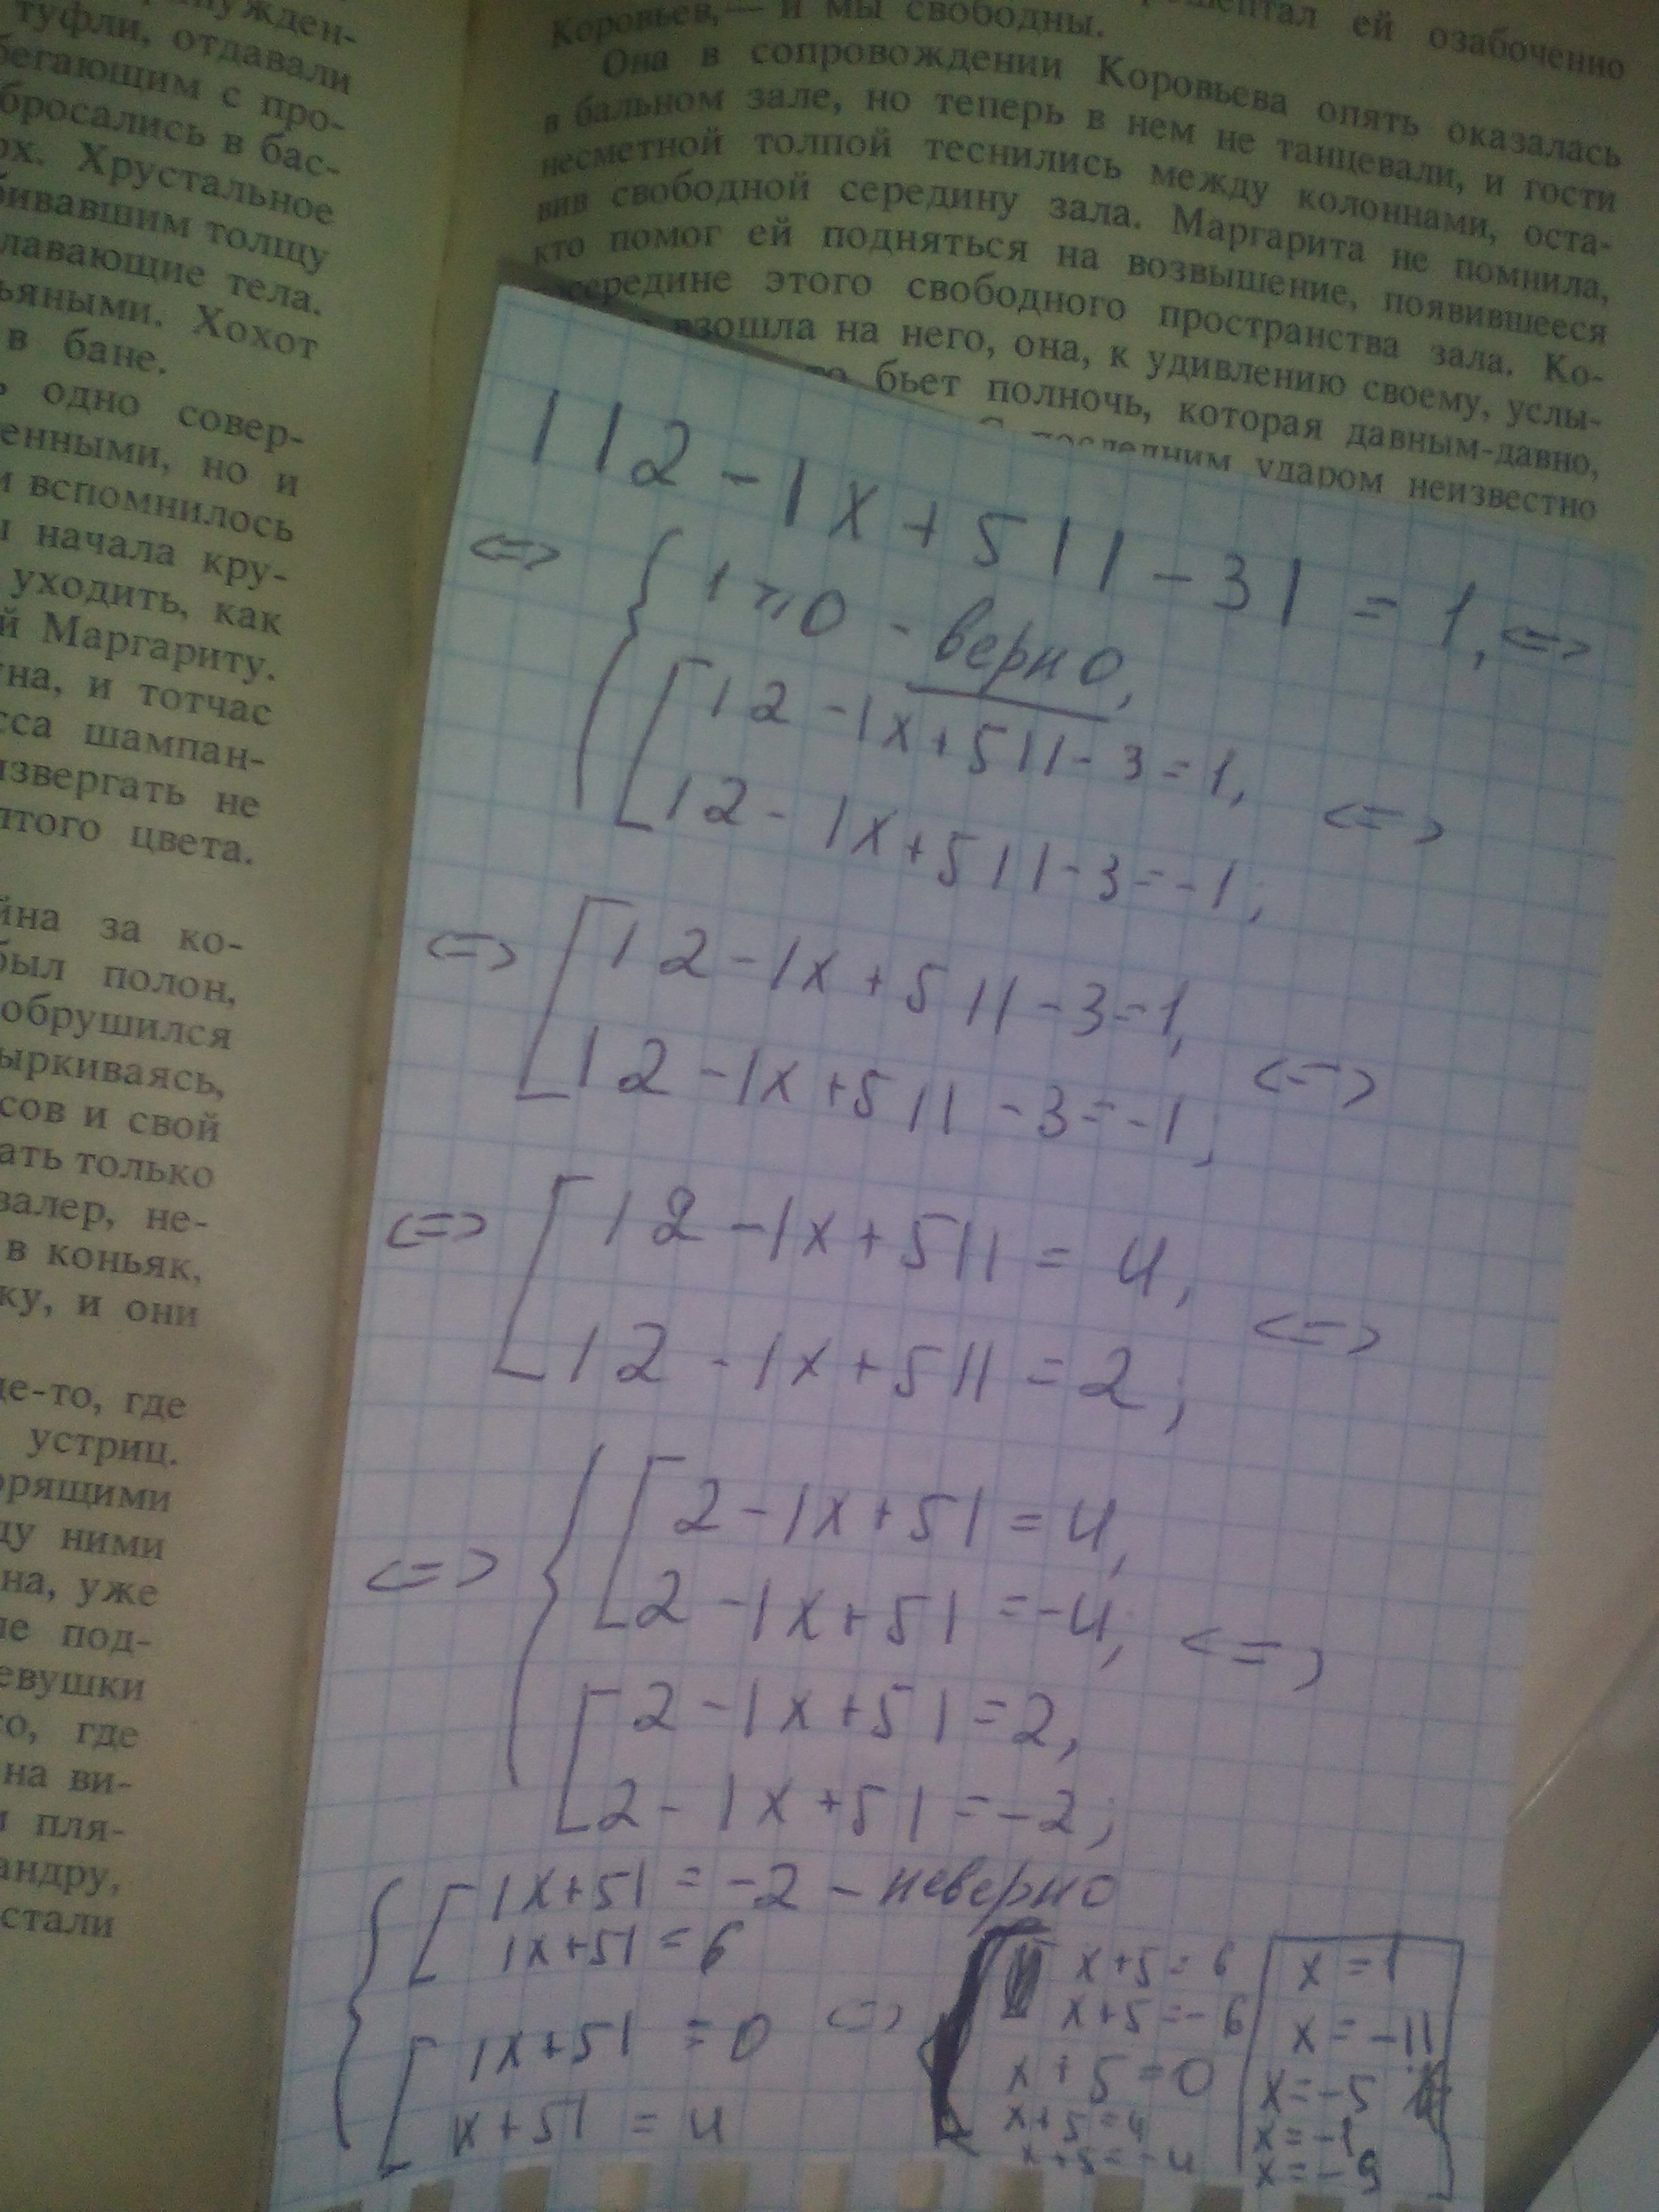 нужден-
туфли, отдавали
бегающим с про-
бросались в бас-
рх. Хрустальное
бивавшим толщу
лавающие тела.
ьяными. Хохот
в бане.
одно совер-
енными, но и
и вспомнилось
ы начала кру-
уходить, как
й Маргариту.
на, и тотчас
сса шампан-
извергать не
лтого цвета.
йна за ко-
был полон,
обрушился
ыркиваясь,
сов и свой
ать только
валер, не-
в коньяк,
ку, и они
де-то, где
устриц.
орящими
ду ними
на, уже
ле под-
евушки
го, где
на ви-
и пля-
андру,
стали
ей озабоченно
Коровьев,— и мы свободны.
Она в сопровождении Коровьева опять оказалась
в бальном зале, но теперь в нем не танцевали, и гости
несметной толпой теснились между колоннами, оста-
вив свободной середину зала. Маргарита не помнила,
кто помог ей подняться на возвышение, появившееся
посередине этого свободного пространства зала. Ко-
взошла на него, она, к удивлению своему, услы-
бьет полночь, которая давным-давно,
С последним ударом неизвестно
||2-|x+5||-3|=1,<=>
<=> { 1≥0 - верно,
[ |2-|x+5||-3=1,
|2-|x+5||-3=-1; <=>
<=> [ |2-|x+5||-3=1,
|2-|x+5||-3=-1; <=>
<=> [ |2-|x+5||=4,
|2-|x+5||=2; <=>
<=> { [ 2-|x+5|=4,
2-|x+5|=-4; <=>
[ 2-|x+5|=2,
2-|x+5|=-2;
{ [ |x+5|=-2 - неверно
|x+5|=6
[ |x+5|=0 <=>
x+5|=4
x+5=6
x+5=-6
x+5=0
x+5=4
x+5=-4
x=1
x=-11
x=-5
x=-1
x=-9